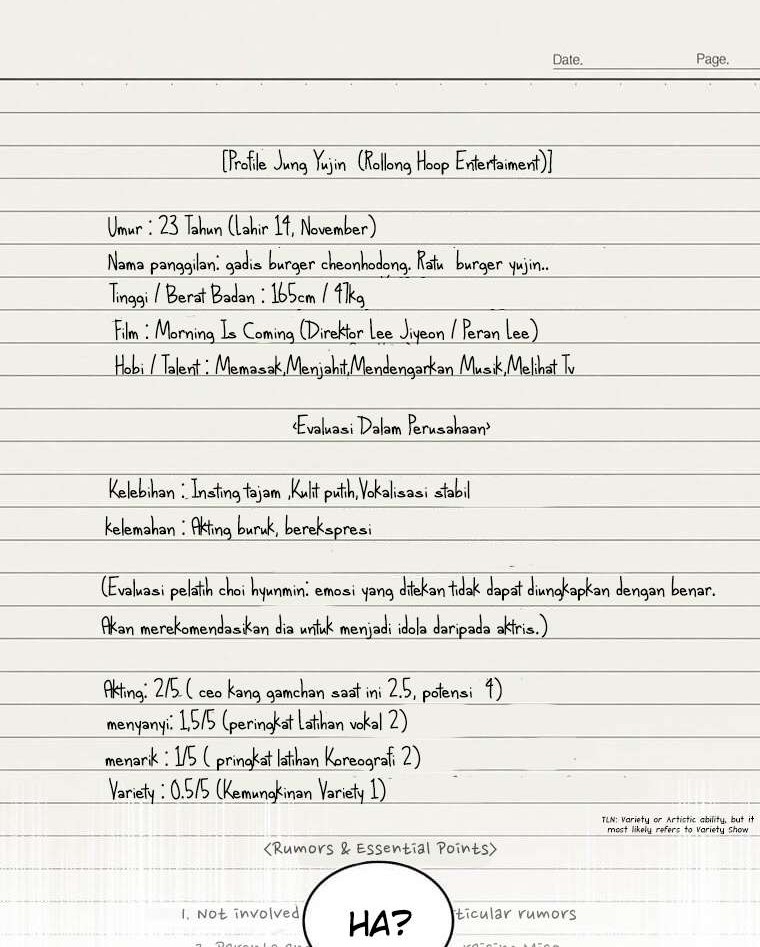 Date.
Page.
[Profile Jung Yujin (Rollong Hoop Entertaiment)]
Umur : 23 Tahun (Lahir 14, November)
Nama panggilan: gadis burger cheonhodong. Ratu burger yujin..
Tinggi / Berat Badan : 165cm / 47kg
Film : Morning Is Coming (Direktor Lee Jiyeon / Peran Lee)
Hobi / Talent : Memasak,Menjahit,Mendengarkan Musik,Melihat Tv
<Evaluasi Dalam Perusahaan>
Kelebihan : Insting tajam ,Kulit putih,Vokalisasi stabil
kelemahan : Akting buruk, berekspresi
(Evaluasi pelatih choi hyunmin: emosi yang ditekan tidak dapat diungkapkan dengan benar.
Akan merekomendasikan dia untuk menjadi idola daripada aktris.)
Akting: 2/5 ( ceo kang gamchan saat ini 2.5, potensi 4)
menyanyi: 1,5/5 (peringkat Latihan vokal 2)
menarik : 1/5 ( pringkat latihan Koreografi 2)
Variety : 0.5/5 (Kemungkinan Variety 1)
TLN: Variety or Artistic ability, but it
most likely refers to Variety Show
<Rumors & Essential Points>
1. Not involved ticular rumors
HA?